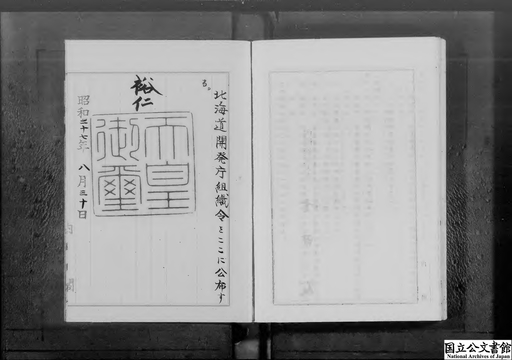 北海道開発庁組織令をここに公布す
る。
裕仁
天皇御璽
昭和二十七年八月三十日
内閣
国立公文書館
National Archives of Japan